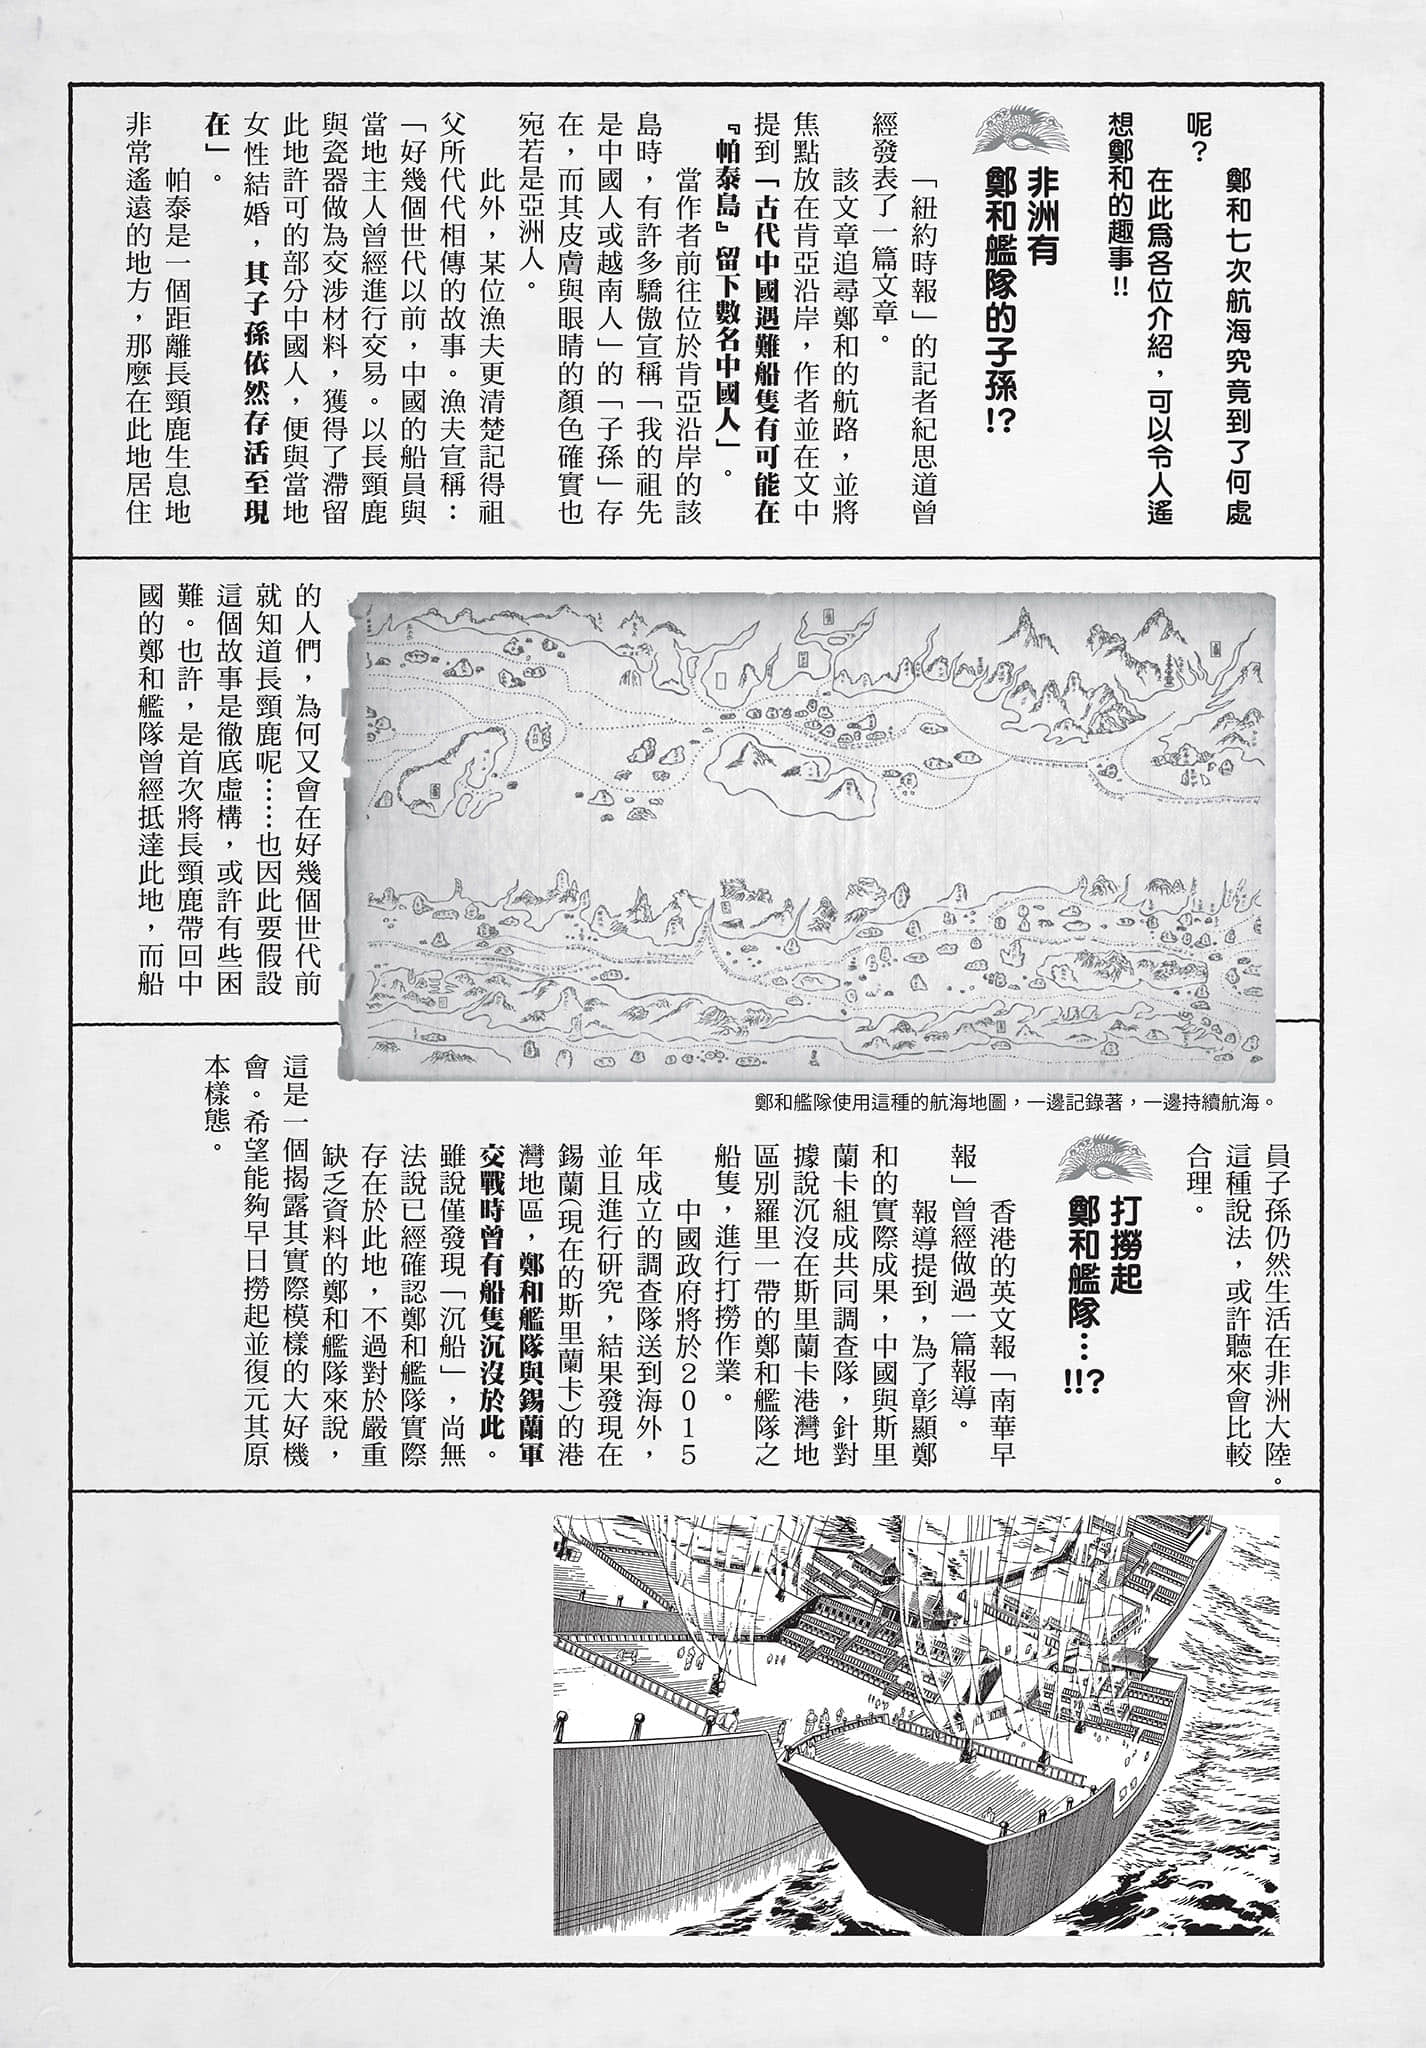 鄭和七次航海究竟到了何處
呢？
在此為各位介紹，可以令人遙
想鄭和的趣事！！
非洲有
鄭和艦隊的子孫！？
「紐約時報」的記者紀思道曾
經發表了一篇文章。
該文章追尋鄭和的航路，並將
焦點放在肯亞沿岸，作者並在文中
提到「古代中國遇難船隻有可能在
『帕泰島』留下數名中國人」。
當作者前往位於肯亞沿岸的該
島時，有許多驕傲宣稱「我的祖先
是中國人或越南人」的「子孫」存
在，而其皮膚與眼睛的顏色確實也
宛若是亞洲人。
此外，某位漁夫更清楚記得祖
父所代代相傳的故事。漁夫宣稱：
「好幾個世代以前，中國的船員與
當地主人曾經進行交易。以長頸鹿
與瓷器做為交涉材料，獲得了滯留
此地許可的部分中國人，便與當地
女性結婚，其子孫依然存活至現
在」。
帕泰是一個距離長頸鹿生息地
非常遙遠的地方，那麼在此地居住
的人們，為何又會在好幾個世代前
就知道長頸鹿呢……也因此要假設
這個故事是徹底虛構，或許有些困
難。也許，是首次將長頸鹿帶回中
國的鄭和艦隊曾經抵達此地，而船
鄭和艦隊使用這種的航海地圖，一邊記錄著，一邊持續航海。
員子孫仍然生活在非洲大陸。
這種說法，或許聽來會比較
合理。
打撈起
鄭和艦隊…！！？
香港的英文報「南華早
報」曾經做過一篇報導。
報導提到，為了彰顯鄭
和的實際成果，中國與斯里
蘭卡組成共同調查隊，針對
據說沉沒在斯里蘭卡港灣地
區別羅里一帶的鄭和艦隊之
船隻，進行打撈作業。
中國政府將於2015
年成立的調查隊送到海外，
並且進行研究，結果發現在
錫蘭（現在的斯里蘭卡）的港
灣地區，鄭和艦隊與錫蘭軍
交戰時曾有船隻沉沒於此。
雖說僅發現「沉船」，尚無
法說已經確認鄭和艦隊實際
存在於此地，不過對於嚴重
缺乏資料的鄭和艦隊來說，
這是一個揭露其實際模樣的大好機
會。希望能夠早日撈起並復元其原
本樣態。